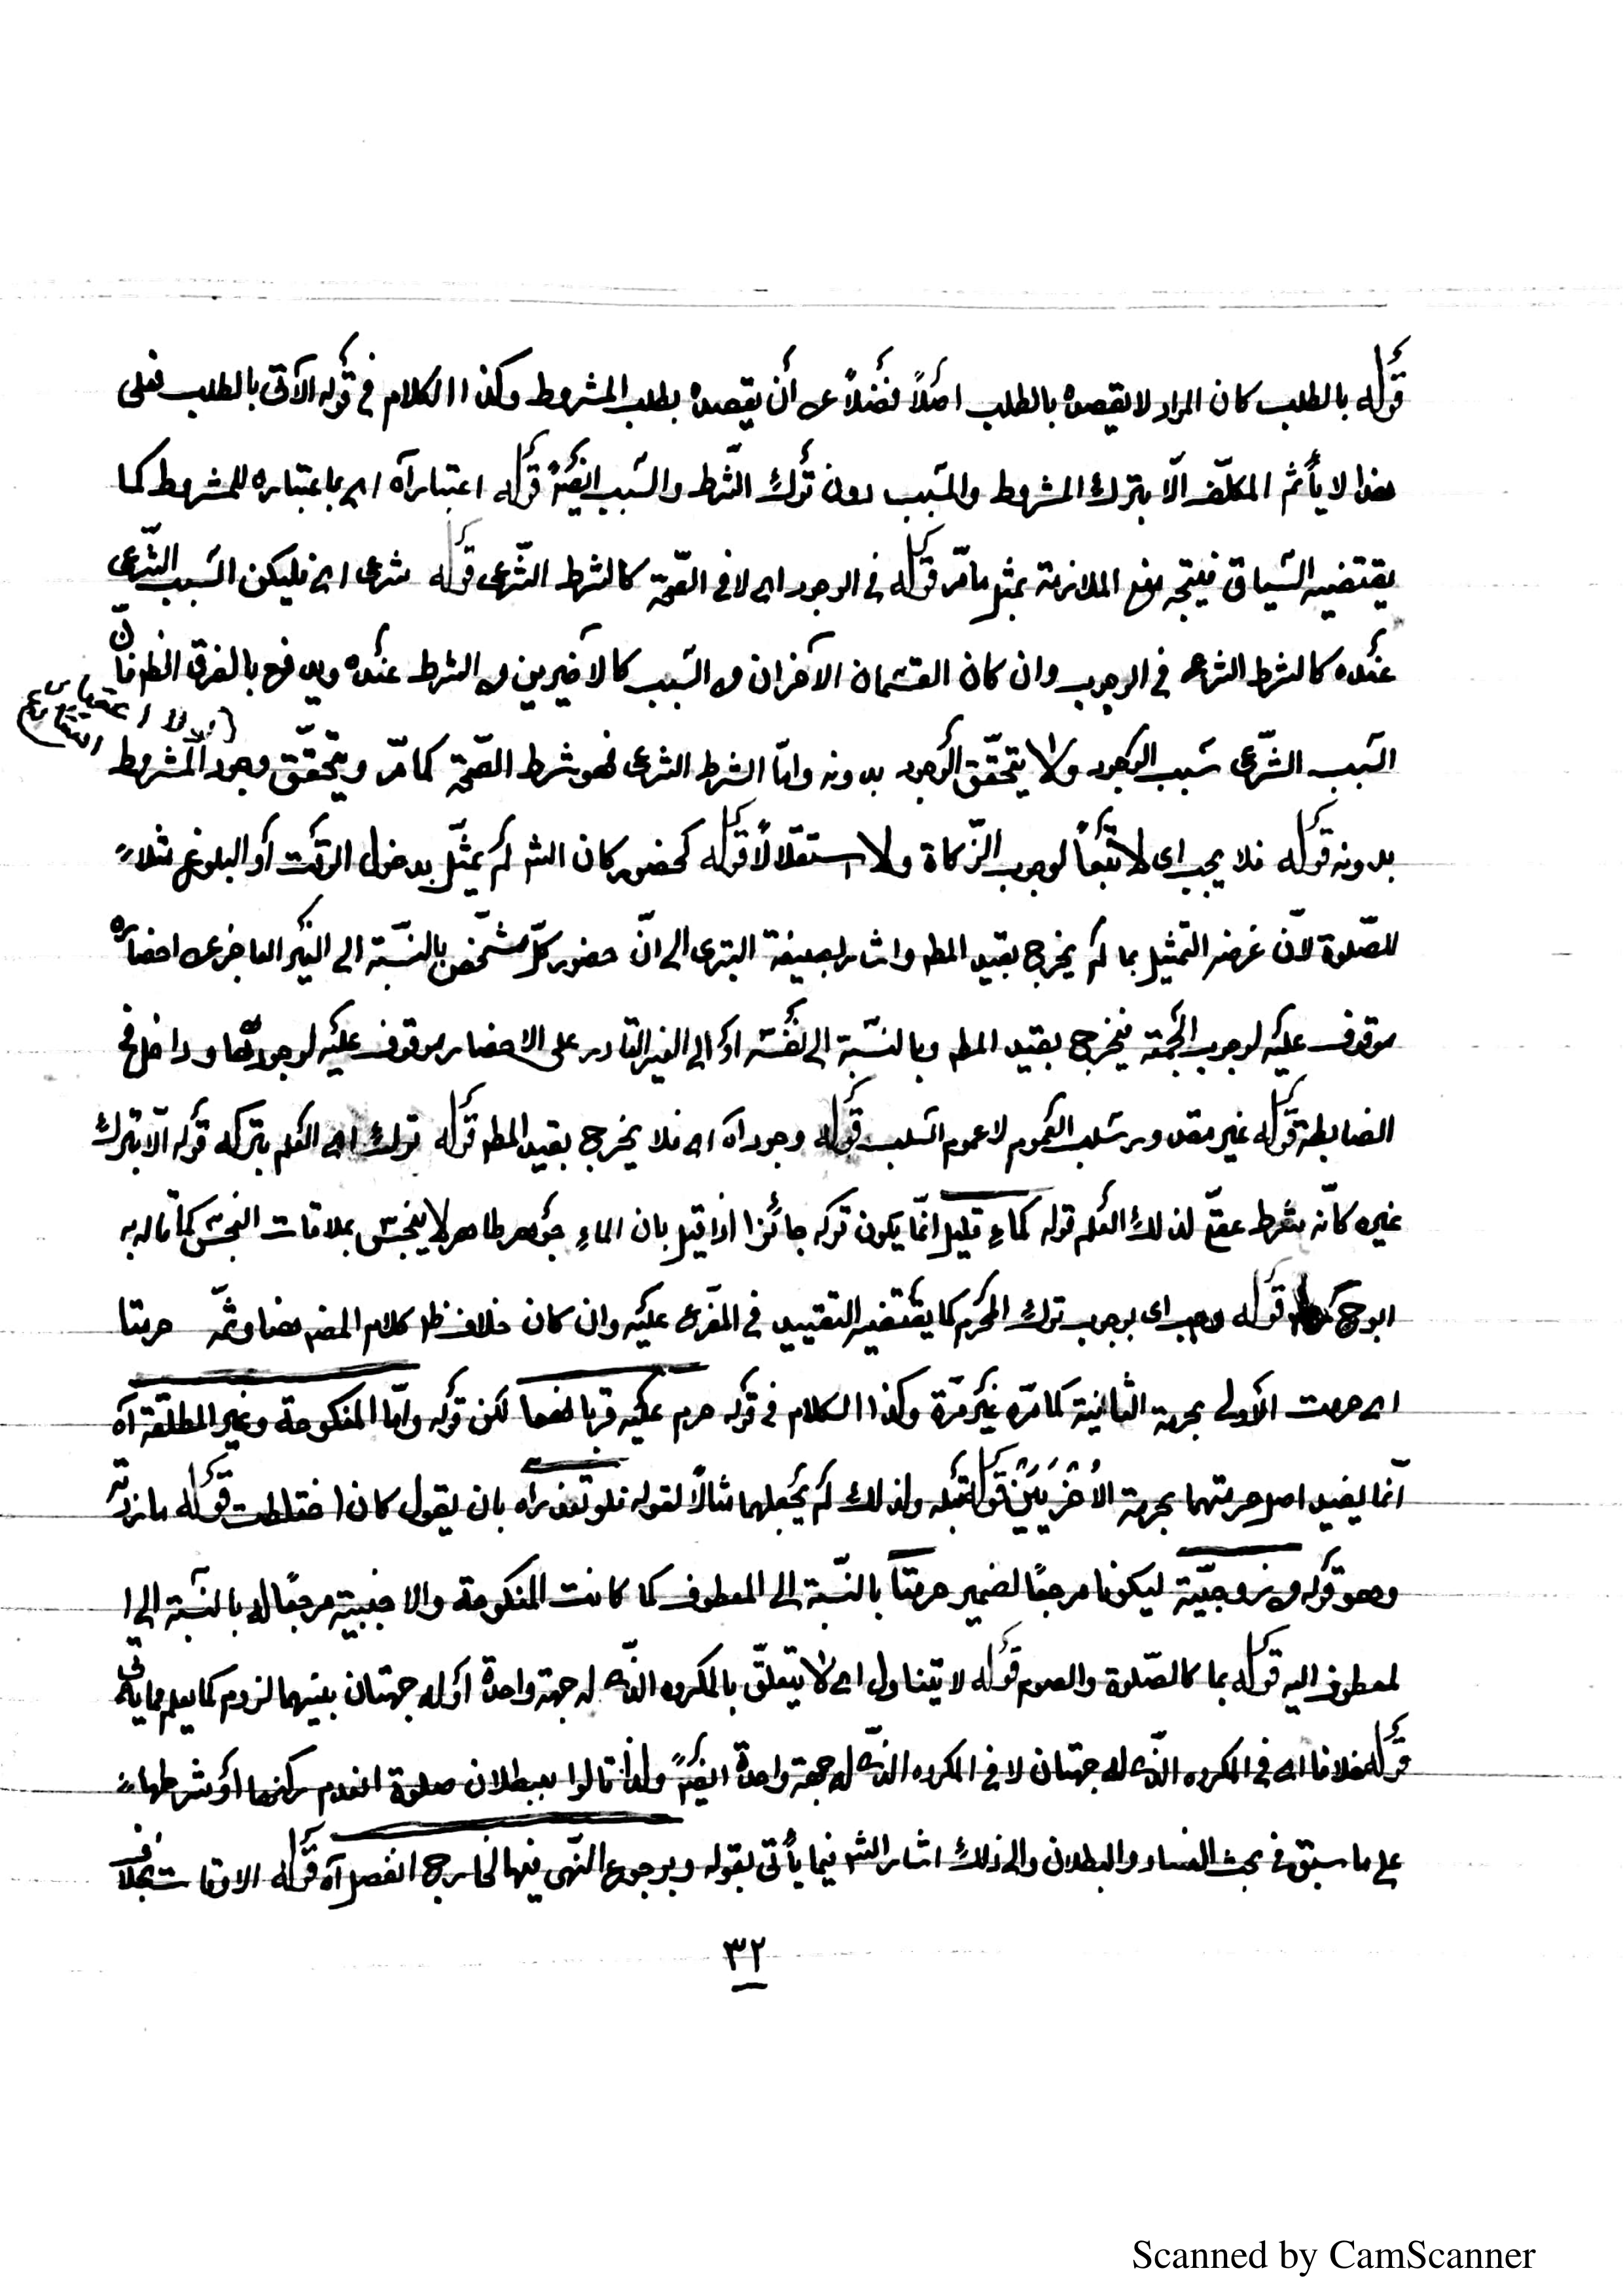 قوله بالطلب كان المراد لا يقصده بالطلب اصلاً فضلاً عن أن يقصده بطلب المشروط وكذا الكلام في قوله الآتى بالطلب فعلى
هذا لا يأثم المكلّف الّا بترك المشروط والمسبب دون ترك الشّرط والسّبب ايضًا قوله اعتبارا آه اى باعتباره للمشروط كما
يقتضيه السّياق فيتجه منع الملازمة بمثل ما مرّ قوله في الوجود اى لا في الصّحة كالشرط الشّرعى قوله شرعى اى فليكن السّبب الشّرعى
عنده كالشرط الشرعى في الوجوب وان كان القسمان الآخران من السّبب كالاخيرين من الشرط عنده ويدفع بالفرق الظ فانّ
السّبب الشّرعى سبب الوجود ولا يتحقّق الوجود بدونه وامّا الشرط الشرعى فهو شرط الصّحة كما مرّ ويتحقّق وجود المشروط
بدونه قوله فلا يجب اى لا تبعاً لوجوب الزّكاة ولا استقلالًا قوله كحضور كان الش لم يمثّل بدخول الوقت أو البلوغ مثلا
للصّلوة لانّ غرضه التمثيل بما لم يخرج بقيد المط واشار بصيغة التبرى الى انّ حضور كلّ شخص بالنسّبة الى الغير العاجز عن احضاره
موقوف عليه لوجوب الجمعة فيخرج بقيد المط وبالنسّبة الى نفسه او الى الغير القادر على الاحضار موقوف عليه لوجودها وداخل في
الضابطة قوله غير مقدور سلب العموم لا عموم السّلب قوله وجودا آه اى فلا يخرج بقيد المط قوله ترك اى العلم بتركه قوله الّا بترك
غيره كأنّه شرط عقلى لذلك العلم قوله كماءٍ قليل انّما يكون تركه جائزا اذا قيل بان الماءِ جوهر طاهر لا ينجس بملاقات النجس كما قال به
ابو ح قوله وجب اى بوجوب ترك المحرّم كما يقتضيه التقييد في المفرّع عليه وان كان خلاف ظ كلام المص هنا وثمّه حرمتا
اى حرمت الأولى بحرمة الثانية كما مرّ غير مرّة وكذا الكلام في قوله حرم عليه قربانهما لكن قوله وامّا المنكوحة وغير المطلّقة آه
انّما يفيد اصل حرمتهما بحرمة الأخريين قوله قبله ولذلك لم يجعلهما مثالًا لقوله فلو تعذر آه بان يقول كان اختلطت قوله ما زدته
وهو قوله من زوجتيه ليكونا مرجعًا لضمير حرمتا بالنسّبة الى المعطوف كما كانت المنكوحة والاجنبية مرجعًا له بالنسّبة الى ا
لمعطوف اليه قوله بما كالصّلوة والصوم قوله لا يتناول اى لا يتعلّق بالمكروه الّذى له جهة واحدة أو له جهتان بينهما لزوم كما يعلم مما يأتى
قوله خلافا اى في المكروه الّذى له جهتان لا في المكروه الّذى له جهة واحدة ايضًا ولذا قالوا ببطلان صلوة انعدم ركنها أو شرطها
على ما سبق في بحث الفساد والبطلان والى ذلك اشار الش فيما يأتى بقوله وبرجوع النّهى فيها لخارج انفصل آه قوله الاوقات بخلاف
٣٢
Scanned by CamScanner